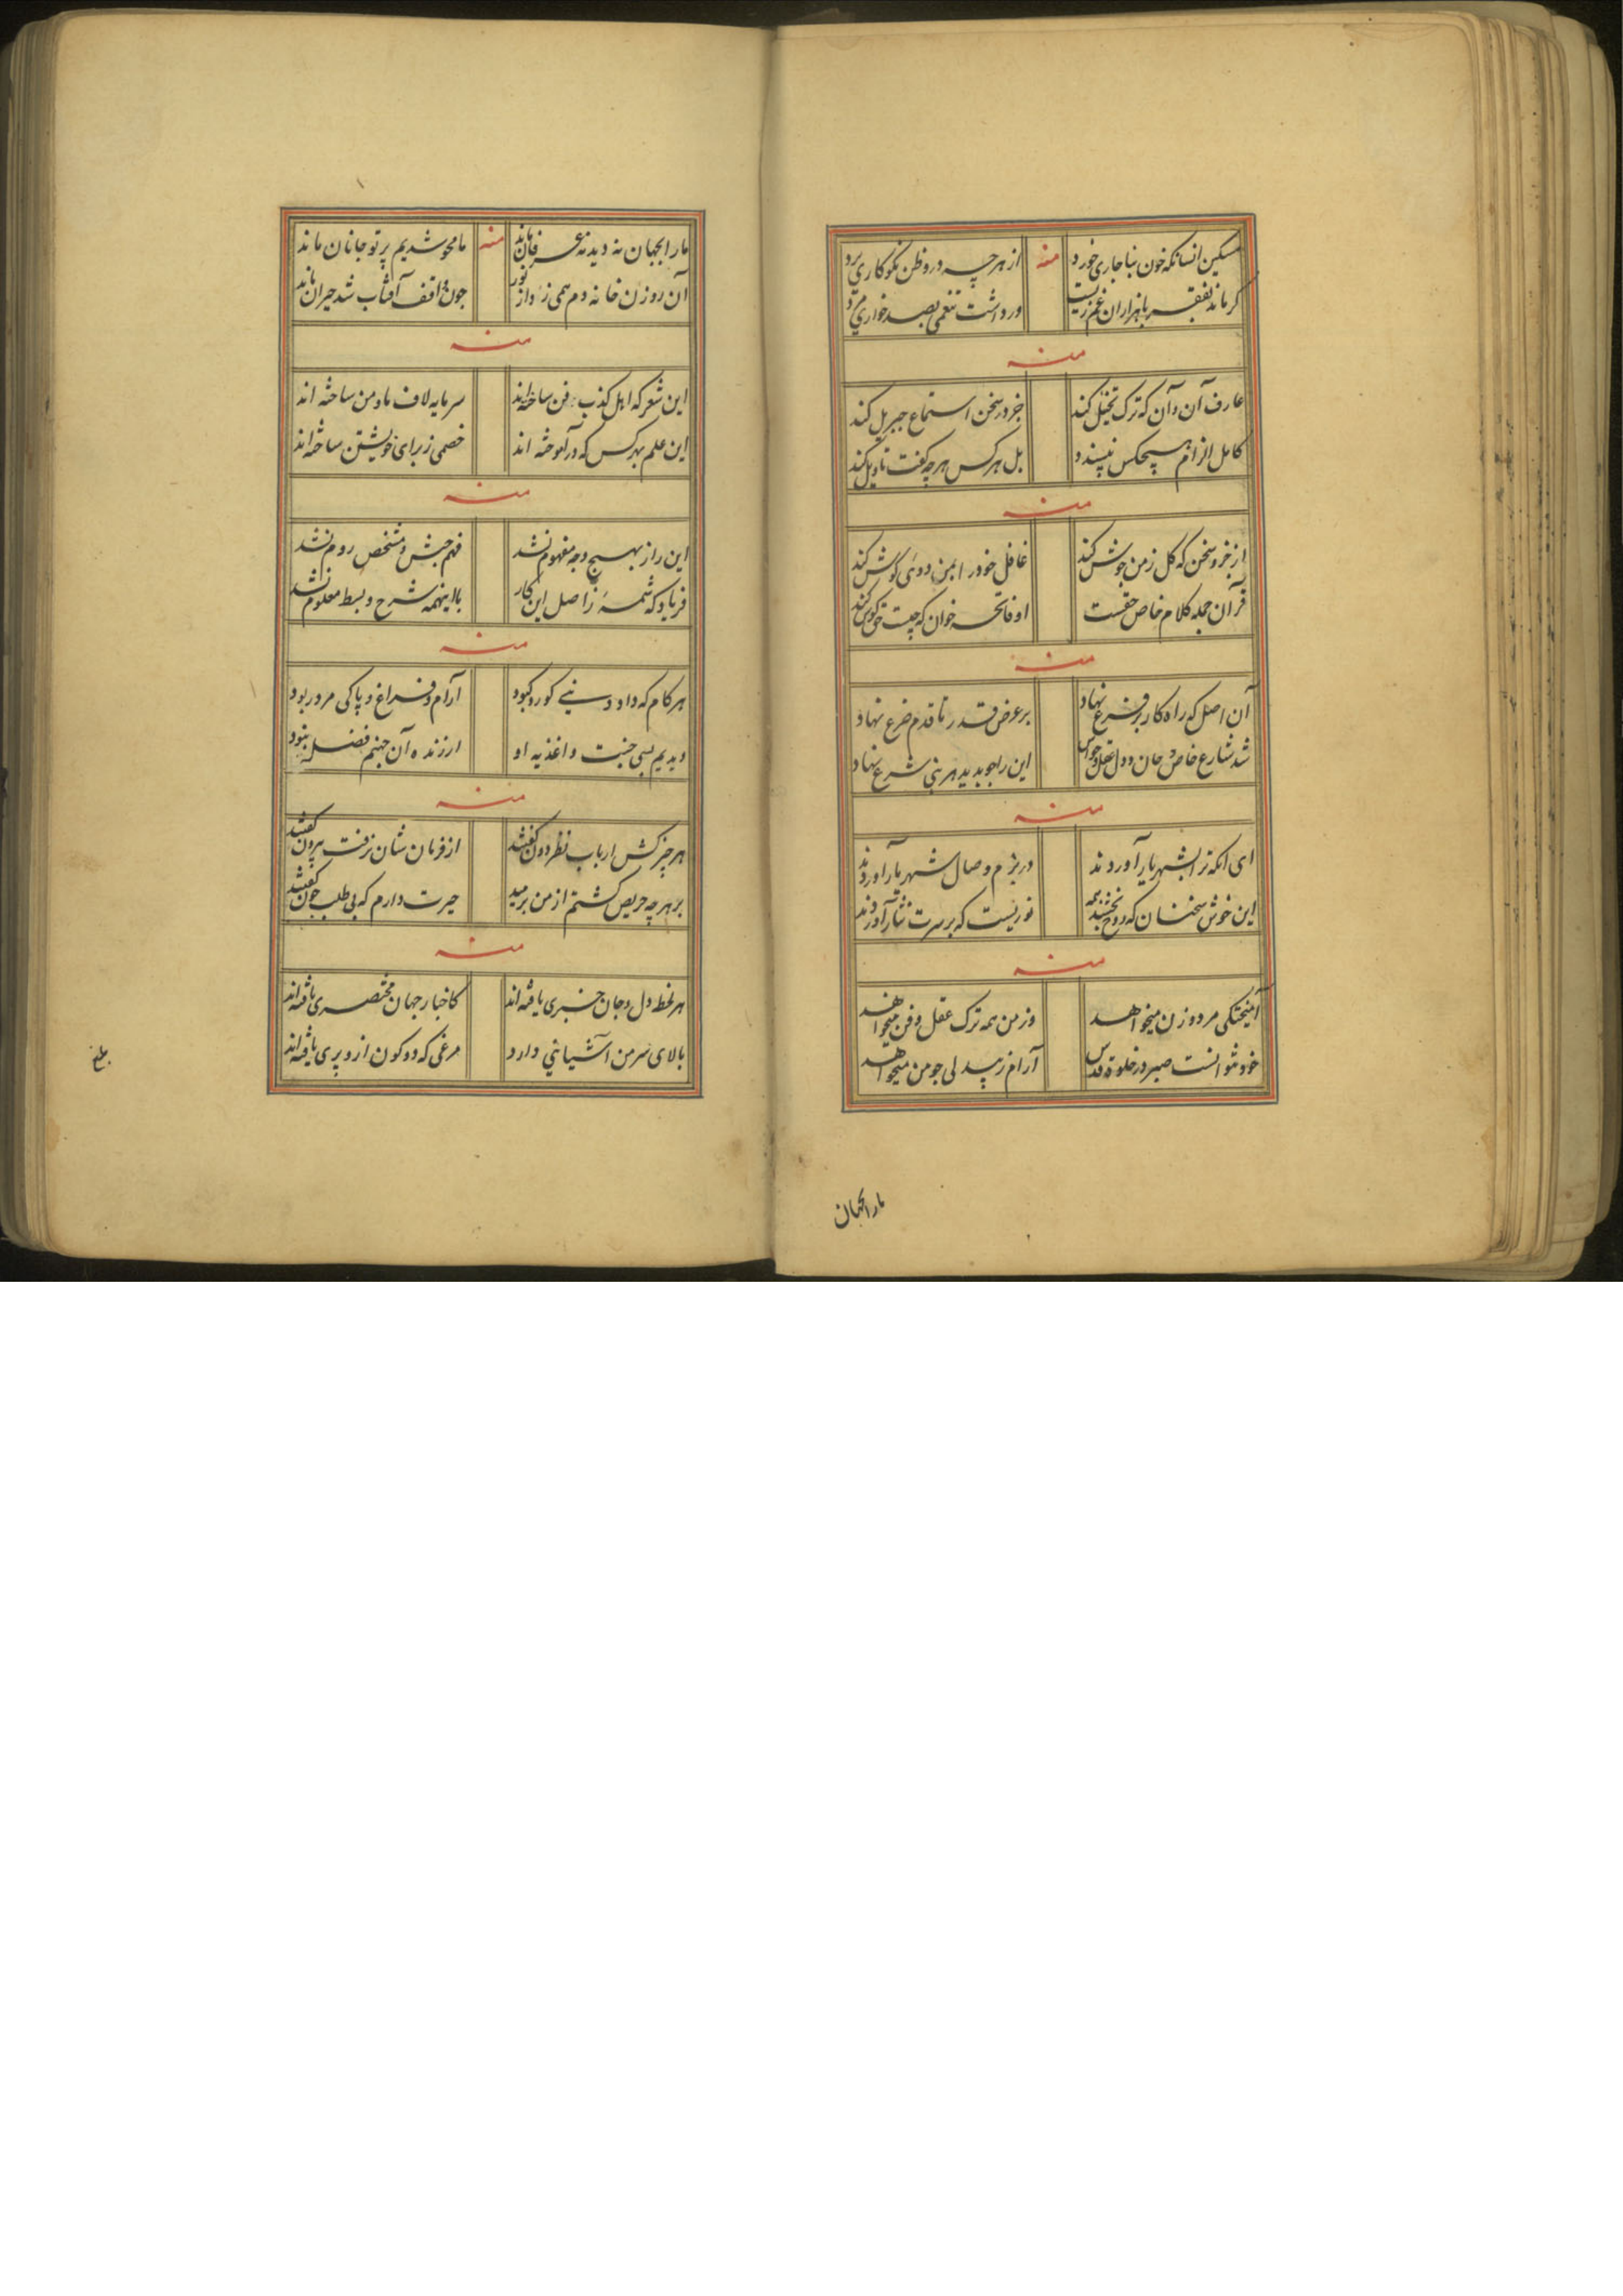 مسکین انسانکه خون بناجاری خورد منه از هر چه درو ظن نکو کاری برد
کر ماند بفقر با هزاران غم زیست ور داشت تنعمی بصد خواری مرد
منه
عارف آن دان که ترک تخییل کند جز در سخن استماع جبریل کند
کامل الزام هیچکس نپسندد بل هر کس هر چه کفت تاویل کند
منه
از جزو سخن که کل زمن جوش کند غافل خود را بمن دوئی کوش کند
قرآن جمله کلام خاص حقست او فاتحه خوان که چیست
منه
آن اصل که راه کار بر فرع نهاد بر عرض قدر تا قدم ضرع نهاد
شد شارع خاص جان و دل عقل و حواس این را بجوبدید هر نبی شرع نهاد
منه
ای انکه ترا بشهر یار آوردند در بزم وصال شهریار آوردند
این خوش سخنان که روح بخشند همه نوریست که بر سرت نثار آوردند
منه
آمیختکی مرد و زن میخواهد وز من همه ترک عقل و فن میخواهد
خود نتوانست صبر در خلوت قدس آرام زبیدلی جو من میخواهد
مارا بجهان
مارا بجهان نه دید نه عرفان ماند منه ما محو شدیم پرتو جانان ماند
آن روزن خانه دم همی زد از نور جون واقف آفتاب شد حیران ماند
منه
این شعر که اهل کذب فن ساخته‌اند سرمایه لاف ما و من ساخته اند
این علم بهر کس که در آموخته اند خصمی ز برای خویشتن ساخته‌اند
منه
این راز بهیچ وجه مفهوم نشد فهم حبش و مشخص روم نشد
فریاد که شمهٔ ز اصل این کار با اینهمه شرح و بسط معلوم نشد
منه
هر کام که داد دنیی کور و کبود آرام و فراغ و پاکی مرد ربود
دیدیم بسی جنبت و اغذیه او ارزنده آن جهنم فضل نبود
منه
هر چیز کش ارباب نظر دون کفتند از فرمان شان نرفت بیرون کفتند
بر هر چه حریص کشتم از من برمید حیرت دارم که بی طلب جون کفتند
منه
هر لحظه دل و جان خبری یافته‌اند کاخبار جهان مختصری یافته‌اند
بالای سر من آشیانی دارد مرغی که دو کون ازو پری یافته‌اند